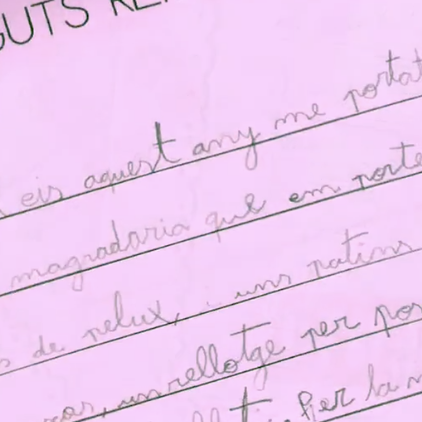 GUTS RE
els aquest any me portat
magradaria que em porte
de pelux, uns patins
un rellotge per pos
Per la m